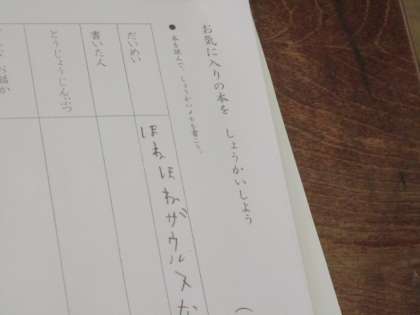 お気に入りの本を しょうかいしよう
●本を読んで、しょうかいメモを書こう。
だいめい
ほねほねザウルス
書いた人
どうじょうじんぶつ